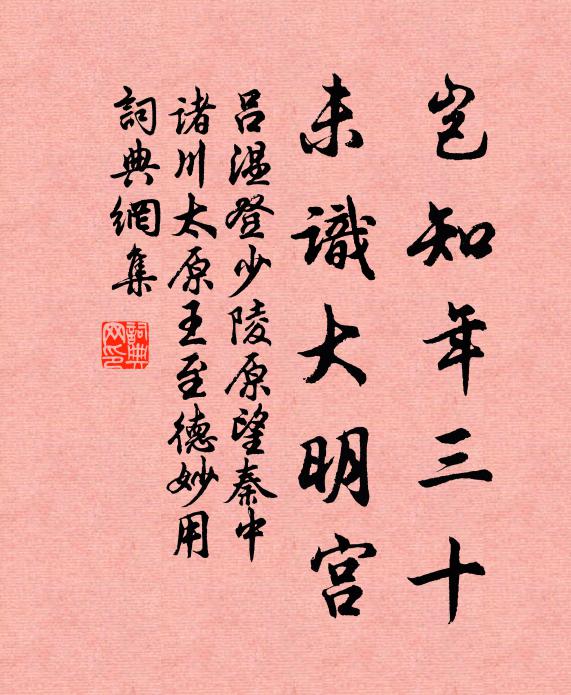 岂知年三十
未識大明宫
吕温登少陵原望秦中
诸川太原王至德妙用
詞典網集
詞典
网印